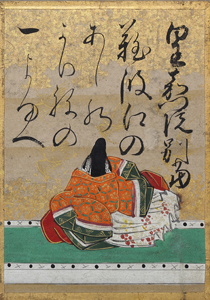 皇嘉門院別當
難波江の
あしの
かりねの
一よゆへ